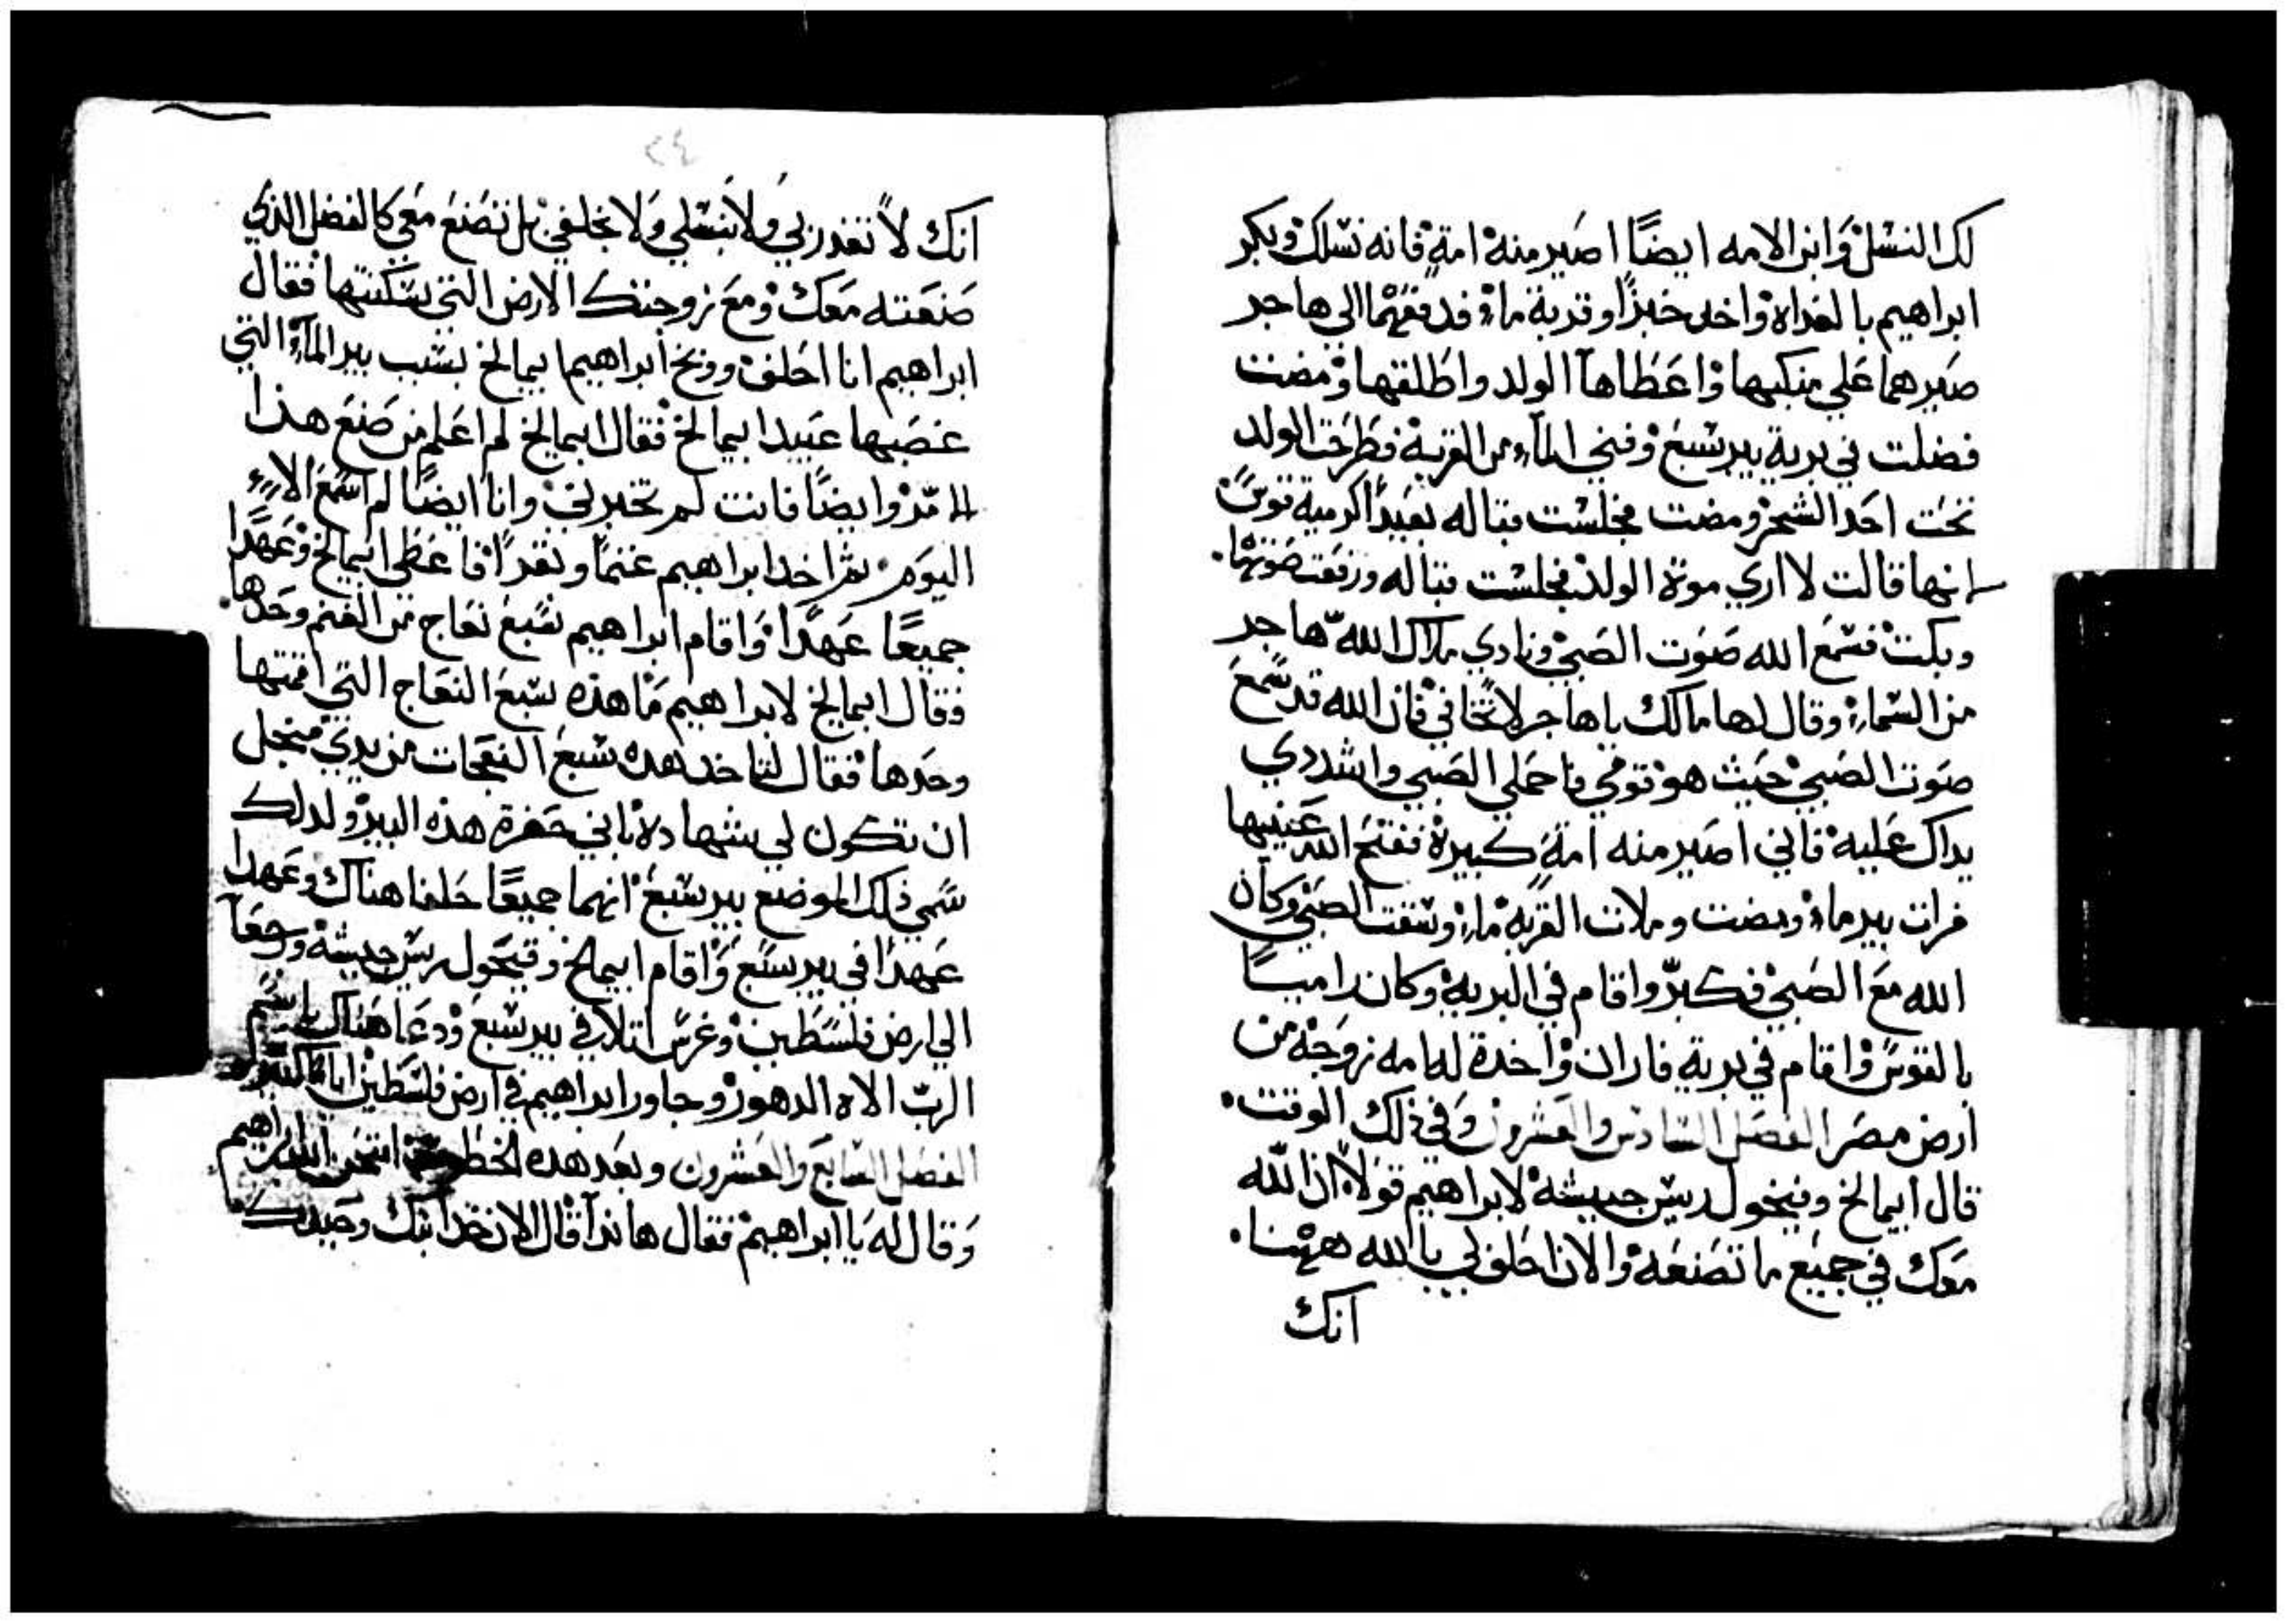 لك النسل وابن الامه ايضًا اصير منه امة فانه نسلك وبكر
ابراهيم بالغداه واخد خبزًا وقربة ماء فدفعهما الي هاجر
صيرهما علي منكبها واعطاها الولد واطلقها ومضت
فضلت في برية بيرشبع وفني الماء من القربة فطرحت الولد
تحت احد الشجر ومضت فجلست قباله بعيدًا كرمية قوس
انها قالت لا اري موتة الولد فجلست قباله ورفعت صوتها
وبكت فسمع الله صوت الصبي ونادي ملاك الله هاجر
من السماء وقال لها مالك ياهاجر لا تخافي فان الله قد سمع
صوت الصبي حيث هو قومي فاحملي الصبي واشددي
يداك عليه فاني اصير منه امة كبيرة ففتح الله عينيها
فرات بير ماء ومضت وملات القربه ماء وسقت الصبي وكان
الله مع الصبي فكبر واقام في البرية وكان راميا
بالقوس واقام في برية فاران واخدة له امه زوجة من
ارض مصر الفصل السادس والعشرون وفي ذلك الوقت
قال ابيمالخ وفيخول ريس جيشه لابراهيم قولًا ان الله
معك في جميع ما تصنعه والان احلف لي بالله ههنا
انك
٢٤
انك لا تغدر بي ولا بنسلي ولا بخلفي بل تصنع معي كالفضل الذي
صنعته معك ومع زوجتك الارض التي سكنتها فقال
ابراهيم انا احلف ووبخ ابراهيم ابيمالخ بسبب بير الماء التي
غصبها عبيد ابيمالخ فقال ابيمالخ لم اعلم من صنع هذا
وايضًا فانت لم تخبرني وانا ايضًا لم اسمع الا
اليوم ثم اخد ابراهيم غنمًا وبقرًا فاعطي ابيمالخ وعهدا
جميعًا عهدًا واقام ابراهيم سبع نعاج من الغنم وحدها
فقال ابيمالخ لابراهيم ما هذه سبع النعاج التي اقمتها
وحدها فقال لتاخد هده سبع النعجات من يدي منجل
ان تكون لي شهادة باني حفرة هذه البير ولدلك
سمي ذلك الموضع بيرشبع انهما جميعًا حلفا هناك وعهدا
عهدًا في بيرسبع واقام ابيمالخ وفيحول ريس جيشه ورجعا
الي ارض فلسطين وغرس اتلا في بيرشبع ودعا هناك باسم
الرب الاه الدهور وجاور ابراهيم في ارض فلسطين اياما
الفصل السابع والعشرون وبعد هده امتحن الله ابراهيم
وقال له يا ابراهيم فقال هاندا قال الان خد ابنك وحبيبك